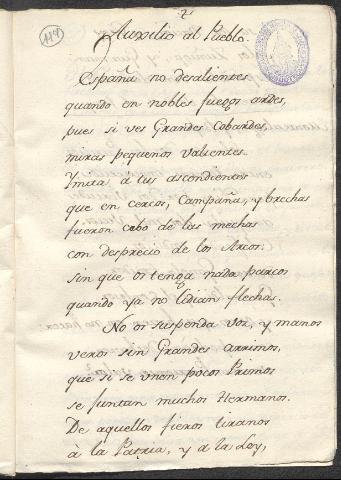 2
117
Auxilio al Pueblo.
España no desalientes
quando en nobles fuegos ardes,
pues si ves Grandes Cobardes,
miras pequenos valientes.
Ymita à tus ascendientes
que en cercos, Campaña, y brechas
fueron cabo de las mechas
con desprecio de los Arcos:
sin que os tenga nada parcos
quando ya no lidian flechas.
No os suspenda voz, y manos
veros sin Grandes arrimos,
que si se unen pocos Primos
se juntan muchos Hermanos.
De aquellos fieros tiranos
à la Patria, y a la Ley,